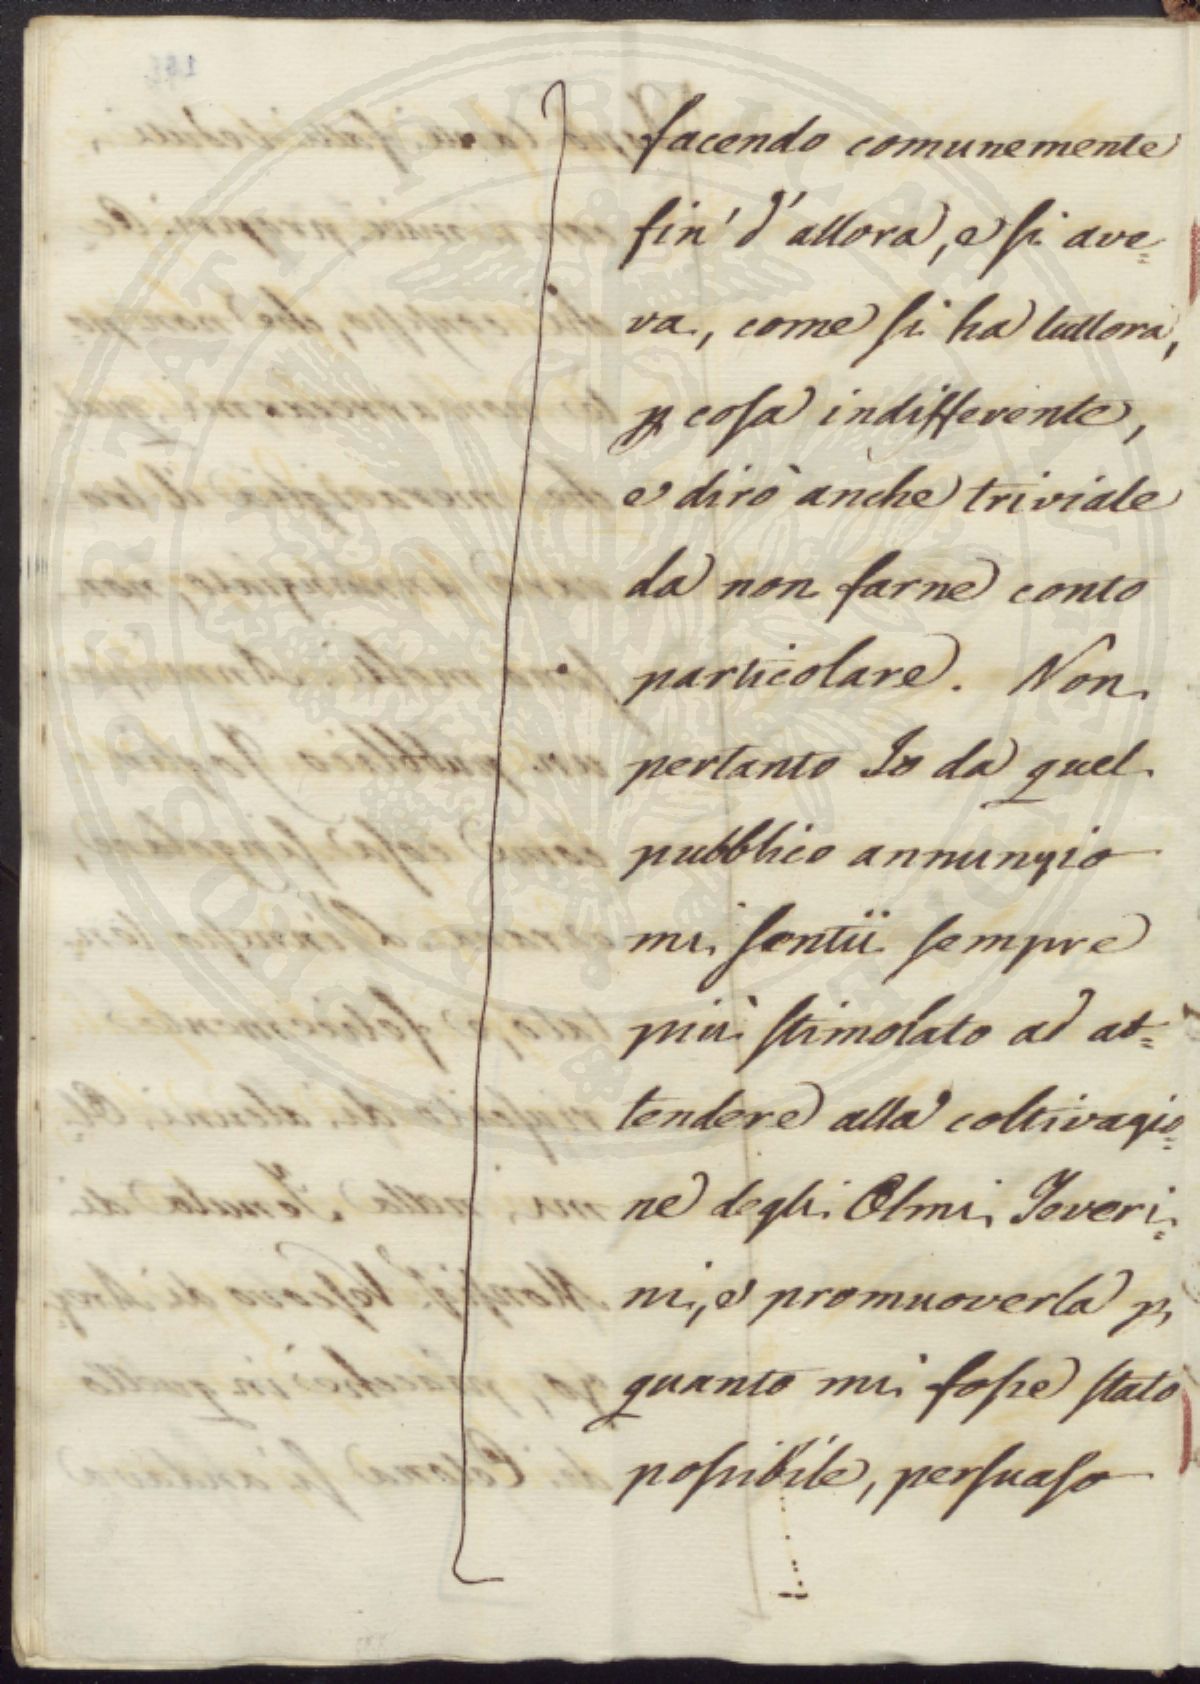 facendo comunemente
fin' d' allora, e si ave=
va, come si ha tuttora,
p cosa indifferente,
e dirò anche triviale
da non farne conto
particolare. Non
pertanto Io da quel
pubblico annunzio
mi sentii sempre
più stimolato ad at=
tendere alla coltivazio=
ne degli Olmi Joveri=
ni, e promuoverla p
quanto mi fosse stato
possibile, persuaso